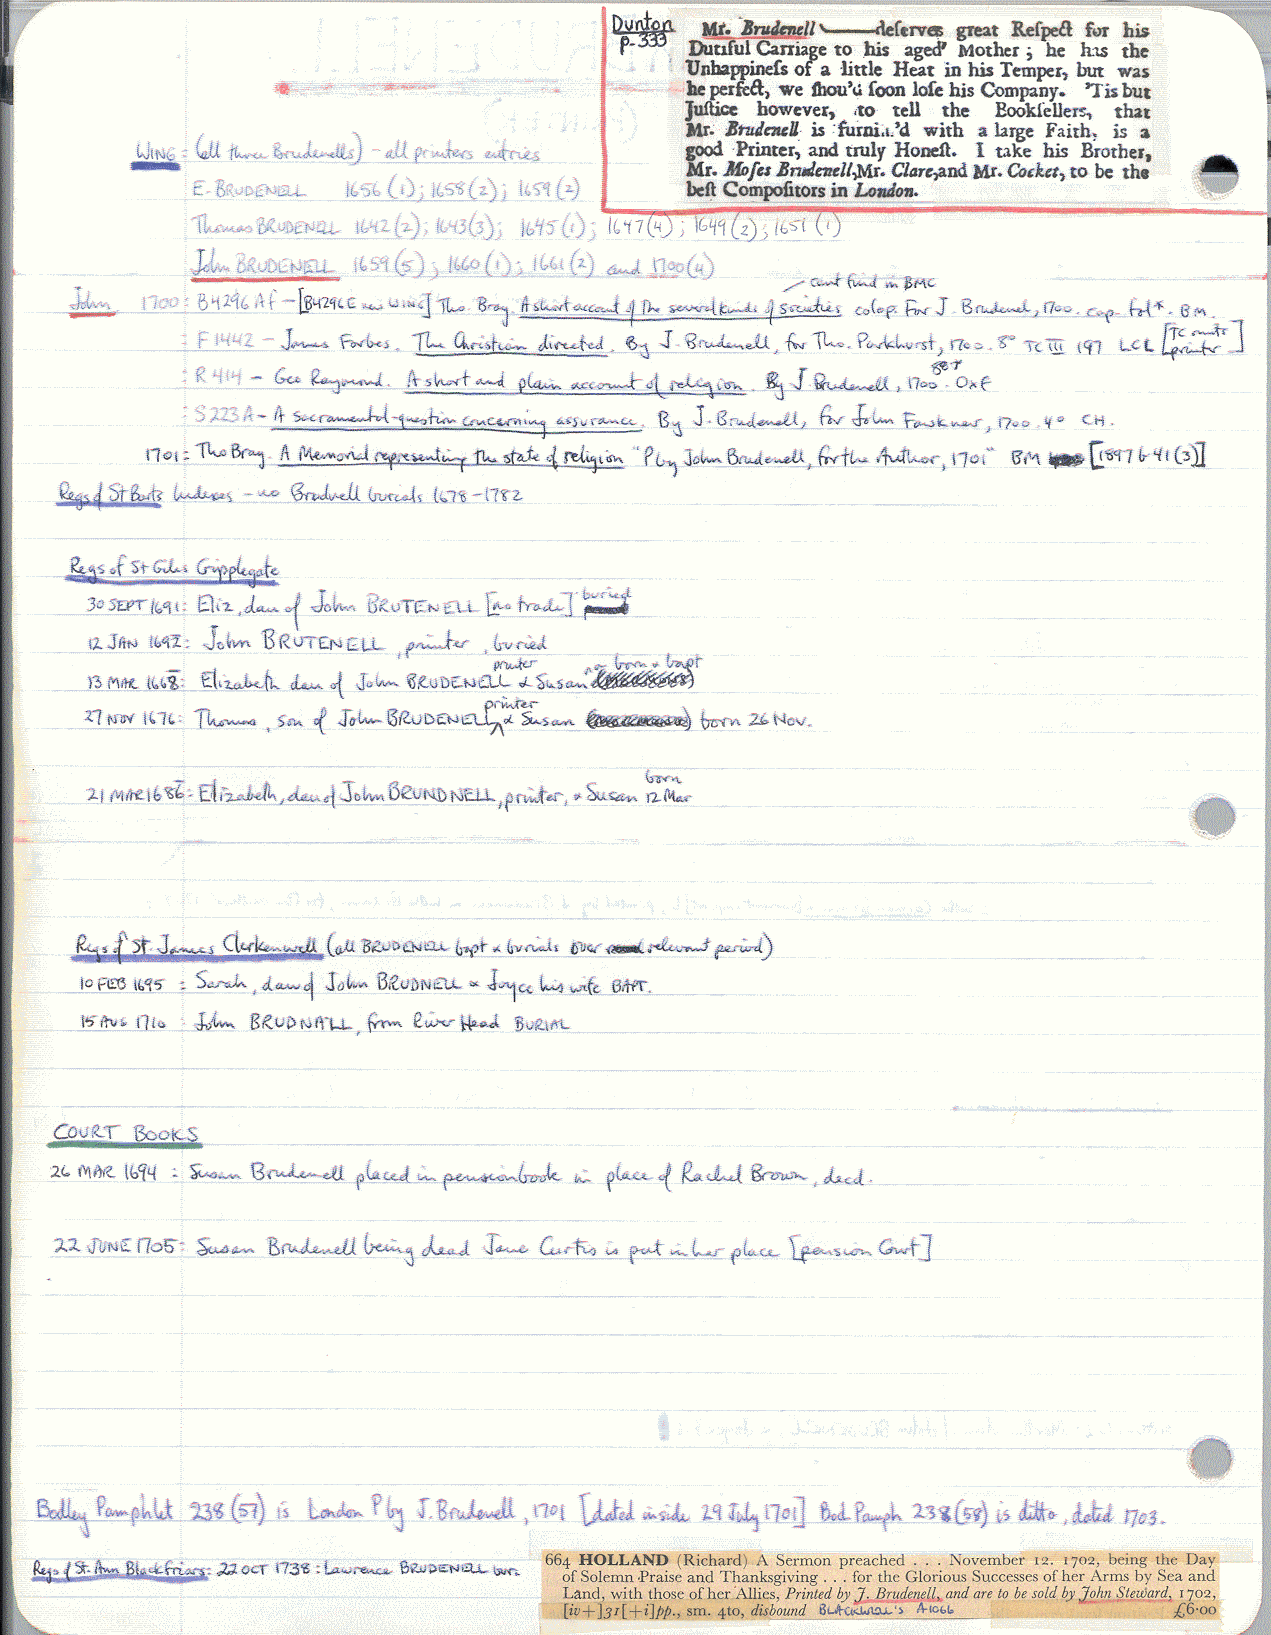 Dunton
p. 333
Mr. Brudenell —— deſerves great Reſpect for his
Dutiful Carriage to his aged Mother; he has the
Unhappineſs of a little Heat in his Temper, but was
he perfect, we ſhou'd ſoon loſe his Company. 'Tis but
Juſtice however, to tell the Bookſellers, that
Mr. Brudenell is furniſh'd with a large Faith, is a
good Printer, and truly Honeſt. I take his Brother,
Mr. Moſes Brudenell, Mr. Clare, and Mr. Cocket, to be the
beſt Compoſitors in London.
WING: (all three Brudenells) - all printers entries
E. BRUDENELL 1656 (1); 1658 (2); 1659 (2)
Thomas BRUDENELL 1642 (2); 1643 (3); 1645 (1); 1647 (4); 1649 (2); 1651 (1)
John BRUDENELL 1659 (5); 1660 (1); 1661 (2) and 1700 (4)
cant find in BMC
John 1700: B4296Af - [B4296E new WING] Tho. Bray. A short account of the several kinds of societies colop. For J. Brudenel, 1700. cap. fol*. BM.
: F1442 - James Forbes. The Christian directed. By J. Brudenell, for Tho. Parkhurst, 1700. 8° TC III 197 LCL [TC omits printer]
: R414 - Geo Raymond. A short and plain account of religion. By J. Brudenell, 1700. OXF
: S223A - A sacramental-question concerning assurance. By J. Brudenell, for John Fowkner, 1700. 4° CH.
1701: Tho Bray. A Memorial representing the state of religion "P by John Brudenell, for the Author, 1701" BM [1897 b 41 (3)]
Regs of St Barts Indexes - no Brudnell burials 1678-1782
Regs of St Giles Cripplegate
30 SEPT 1691: Eliz, dau of John BRUTENELL [no trade] buried
12 JAN 1692: John BRUTENELL, printer, buried
13 MAR 1668: Elizabeth dau of John BRUDENELL printer & Susan born & bapt
27 NOV 1676: Thomas, son of John BRUDENELL printer & Susan born 26 Nov.
21 MAR 1686: Elizabeth, dau of John BRUNDNELL, printer, & Susan born 12 Mar
Regs of St. James Clerkenwell (all BRUDENELL bapt & burials over relevant period)
10 FEB 1695 : Sarah, dau of John BRUDNELL & Joyce his wife BAPT.
15 AUG 1710 : John BRUDNALL, from River Head BURIAL
COURT BOOKS
26 MAR 1694 : Susan Brudenell placed in pension book in place of Rachel Brown, decd.
22 JUNE 1705: Susan Brudenell being dead Jane Curtis is put in her place [pension Court]
Bodley Pamphlet 238 (57) is London P by J. Brudenell, 1701 [dated inside 29 July 1701] Bod Pamph 238 (58) is ditto, dated 1703.
Regs of St. Ann Blackfriars: 22 OCT 1738: Lawrence BRUDENELL bur.
664 HOLLAND (Richard) A Sermon preached . . . November 12. 1702, being the Day
of Solemn Praise and Thanksgiving . . . for the Glorious Successes of her Arms by Sea and
Land, with those of her Allies, Printed by J. Brudenell, and are to be sold by John Steward, 1702,
[iv+]31[+i]pp., sm. 4to, disbound BLACKWELL'S A1066 £6·00